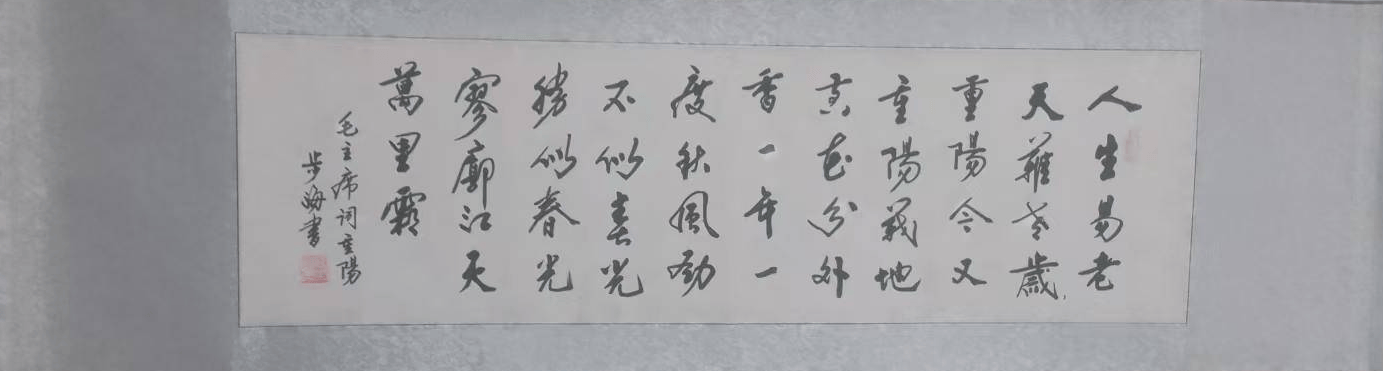 人生易老
天難老歲
重陽今又
重陽戰地
黃花分外
香一年一
度秋風勁
不似春光
勝似春光
寥廓江天
萬里霜
毛主席詞重陽
步海書